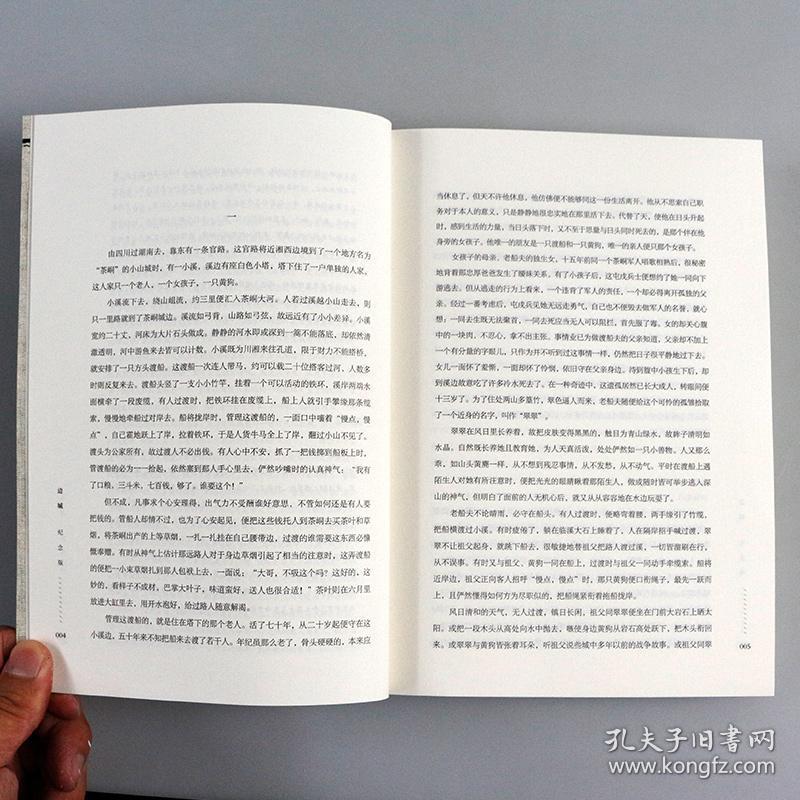 一
由四川过湖南去，靠东有一条官路。这官路将近湘西边境到了一个地方名为
“茶峒”的小山城时，有一小溪，溪边有座白色小塔，塔下住了一户单独的人家。
这人家只一个老人，一个女孩子，一只黄狗。
小溪流下去，绕山岨流，约三里便汇入茶峒大河。人若过溪越小山走去，则
只一里路就到了茶峒城边。溪流如弓背，山路如弓弦，故远近有了小小差异。小溪
宽约二十丈，河床为大片石头做成。静静的河水即或深到一篙不能落底，却依然清
澈透明，河中游鱼来去皆可以计数。小溪既为川湘来往孔道，限于财力不能搭桥，
就安排了一只方头渡船。这渡船一次连人带马，约可以载二十位搭客过河，人数多
时则反复来去。渡船头竖了一支小小竹竿，挂着一个可以活动的铁环，溪岸两端水
面横牵了一段废缆，有人过渡时，把铁环挂在废缆上，船上人就引手攀缘那条缆
索，慢慢地牵船过对岸去。船将拢岸时，管理这渡船的，一面口中嚷着“慢点，慢
点”，自己霍地跃上了岸，拉着铁环，于是人货牛马全上了岸，翻过小山不见了。
渡头为公家所有，故过渡人不必出钱。有人心中不安，抓了一把钱掷到船板上时，
管渡船的必为一一拾起，依然塞到那人手心里去，俨然吵嘴时的认真神气：“我有
了口粮，三斗米，七百钱，够了。谁要这个！”
但不成，凡事求个心安理得，出气力不受酬谁好意思，不管如何还是有人要
把钱的。管船人却情不过，也为了心安起见，便把这些钱托人到茶峒去买茶叶和草
烟，将茶峒出产的上等草烟，一扎一扎挂在自己腰带边，过渡的谁需要这东西必慷
慨奉赠。有时从神气上估计那远路人对于身边草烟引起了相当的注意时，这弄渡船
的便把一小束草烟扎到那人包袱上去，一面说：“大哥，不吸这个吗？这好的，这
妙的，看样子不成材，巴掌大叶子，味道蛮好，送人也很合适！”茶叶则在六月里
放进大缸里去，用开水泡好，给过路人随意解渴。
管理这渡船的，就是住在塔下的那个老人。活了七十年，从二十岁起便守在这
小溪边，五十年来不知把船来去渡了若干人。年纪虽那么老了，骨头硬硬的，本来应
边城 纪念版
004
当休息了，但天不许他休息，他仿佛便不能够同这一份生活离开。他从不思索自己职
务对于本人的意义，只是静静地很忠实地在那里活下去。代替了天，使他在日头升起
时，感到生活的力量，当日头落下时，又不至于思量与日头同时死去的，是那个伴在他
身旁的女孩子。他唯一的朋友是一只渡船和一只黄狗，唯一的亲人便只那个女孩子。
女孩子的母亲，老船夫的独生女，十五年前同一个茶峒军人唱歌相熟后，很秘密
地背着那忠厚爸爸发生了暧昧关系。有了小孩子后，这屯戍兵士便想约了她一同向下
游逃去。但从逃走的行为上看来，一个违背了军人的责任，一个却必得离开孤独的父
亲。经过一番考虑后，屯戍兵见她无远走勇气，自己也不便毁去做军人的名誉，就心
想：一同去生既无法聚首，一同去死应当无人可以阻拦，首先服了毒。女的却关心腹
中的一块肉，不忍心，拿不出主张。事情业已为做渡船夫的父亲知道，父亲却不加上
一个有分量的字眼儿，只作为并不听到过这事情一样，仍然把日子很平静地过下去。
女儿一面怀了羞惭，一面却怀了怜悯，依旧守在父亲身边。待到腹中小孩生下后，却
到溪边故意吃了许多冷水死去了。在一种奇迹中，这遗孤居然已长大成人，转眼间便
十三岁了。为了住处两山多篁竹，翠色逼人而来，老船夫随便给这个可怜的孤雏拾取
了一个近身的名字，叫作“翠翠”。
翠翠在风日里长养着，故把皮肤变得黑黑的，触目为青山绿水，故眸子清明如
水晶。自然既长养她且教育她，为人天真活泼，处处俨然如一只小兽物。人又那么
乖，如山头黄麂一样，从不想到残忍事情，从不发愁，从不动气。平时在渡船上遇
陌生人对她有所注意时，便把光光的眼睛瞅着那陌生人，做成随时皆可举步逃入深
山的神气，但明白了面前的人无机心后，就又从从容容地在水边玩耍了。
老船夫不论晴雨，必守在船头。有人过渡时，便略弯着腰，两手缘引了竹缆，
把船横渡过小溪。有时疲倦了，躺在临溪大石上睡着了，人在隔岸招手喊过渡，翠
翠不让祖父起身，就跳下船去，很敏捷地替祖父把路人渡过溪，一切皆溜刷在行，
从不误事。有时又与祖父、黄狗一同在船上，过渡时与祖父一同动手牵缆索。船将
近岸边，祖父正向客人招呼“慢点，慢点”时，那只黄狗便口衔绳子，最先一跃而
上，且俨然懂得如何方为尽职似的，把船绳紧衔着拖船拢岸。
风日清和的天气，无人过渡，镇日长闲，祖父同翠翠便坐在门前大岩石上晒太
阳。或把一段木头从高处向水中抛去，嗾使身边黄狗从岩石高处跃下，把木头衔回
来。或翠翠与黄狗皆张着耳朵，听祖父说些城中多年以前的战争故事。或祖父同翠翠
005
孔夫子旧书网
www.kongfz.com